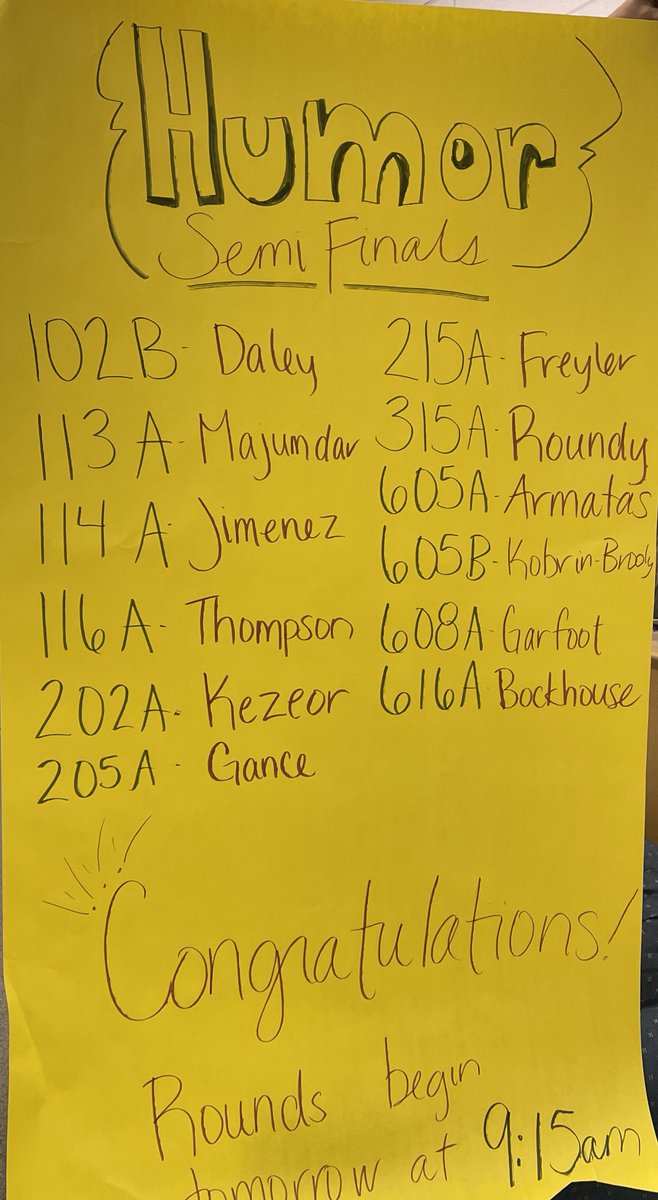 Humor
Semi Finals
102B - Daley
113 A - Majumdar
114 A - Jimenez
116 A - Thompson
202A - Kezeor
205 A - Gance
215A - Freyler
315A - Roundy
605A - Armatas
605B - Kobrin-Brody
608A - Garfoot
616A - Bockhouse
Congratulations!
Rounds begin
tomorrow at 9:15am